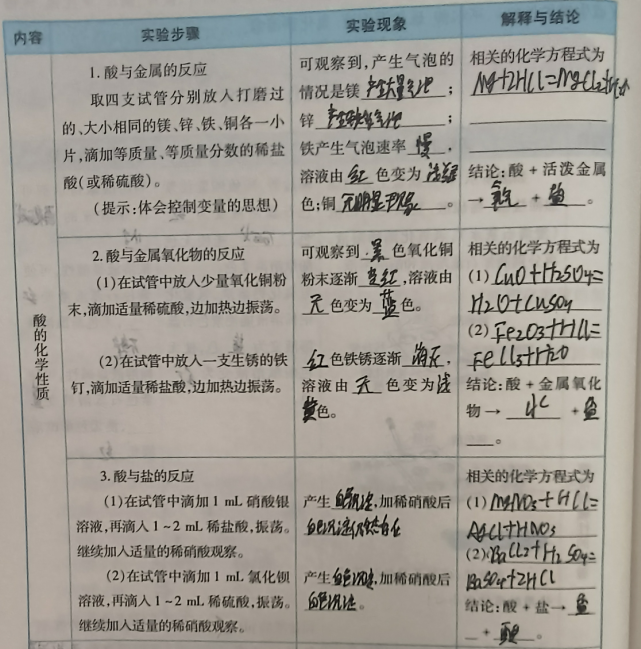 内容 实验步骤 实验现象 解释与结论
酸的化学性质
1.酸与金属的反应
取四支试管分别放入打磨过
的、大小相同的镁、锌、铁、铜各一小
片,滴加等质量、等质量分数的稀盐
酸(或稀硫酸)。
(提示:体会控制变量的思想)
可观察到,产生气泡的
情况是镁 产生大量气泡 ;
锌 产生 气泡 ;
铁产生气泡速率 慢 ,
溶液由 红 色变为 浅绿
色;铜 无明显现象 。
相关的化学方程式为
Mg+2HCl=MgCl2+H2↑
结论:酸 + 活泼金属
→ 氢气 + 盐 。
2.酸与金属氧化物的反应
(1)在试管中放入少量氧化铜粉
末,滴加适量稀硫酸,边加热边振荡。
(2)在试管中放入一支生锈的铁
钉,滴加适量稀盐酸,边加热边振荡。
可观察到 黑 色氧化铜
粉末逐渐 变红 ,溶液由
无 色变为 蓝 色。
红 色铁锈逐渐 消失 ,
溶液由 无 色变为 浅
黄 色。
相关的化学方程式为
(1) CuO+H2SO4=
H2O+CuSO4
(2) Fe2O3+HCl=
FeCl3+H2O
结论:酸 + 金属氧化
物→ 水 + 盐
。
3.酸与盐的反应
(1)在试管中滴加 1 mL 硝酸银
溶液,再滴入 1~2 mL 稀盐酸,振荡。
继续加入适量的稀硝酸观察。
(2)在试管中滴加 1 mL 氯化钡
溶液,再滴入 1~2 mL 稀硫酸,振荡。
继续加入适量的稀硝酸观察。
产生 白色沉淀 ,加稀硝酸后
白色沉淀仍然存在
产生 白色沉淀 ,加稀硝酸后
白色沉淀 。
相关的化学方程式为
(1) AgNO3+HCl=
AgCl+HNO3
(2) BaCl2+H2SO4=
BaSO4+2HCl
结论:酸 + 盐→ 盐
+ 酸 。